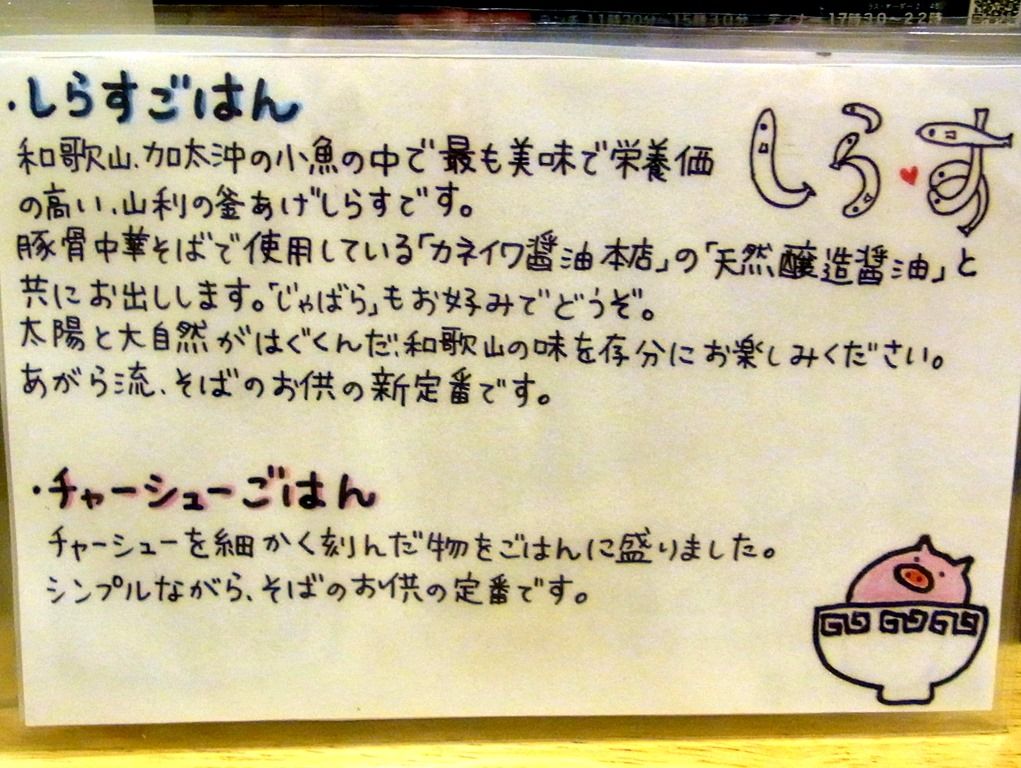 ランチ 11時30分～15時30分 ディナー 17時30～22時
・しらすごはん
しらす
和歌山、加太沖の小魚の中で最も美味で栄養価
の高い、山利の釜あげしらすです。
豚骨中華そばで使用している「カネイワ醤油本店」の「天然醸造醤油」と
共にお出しします。「じゃばら」もお好みでどうぞ。
太陽と大自然がはぐくんだ、和歌山の味を存分にお楽しみください。
あがら流、そばのお供の新定番です。
・チャーシューごはん
チャーシューを細かく刻んだ物をごはんに盛りました。
シンプルながら、そばのお供の定番です。